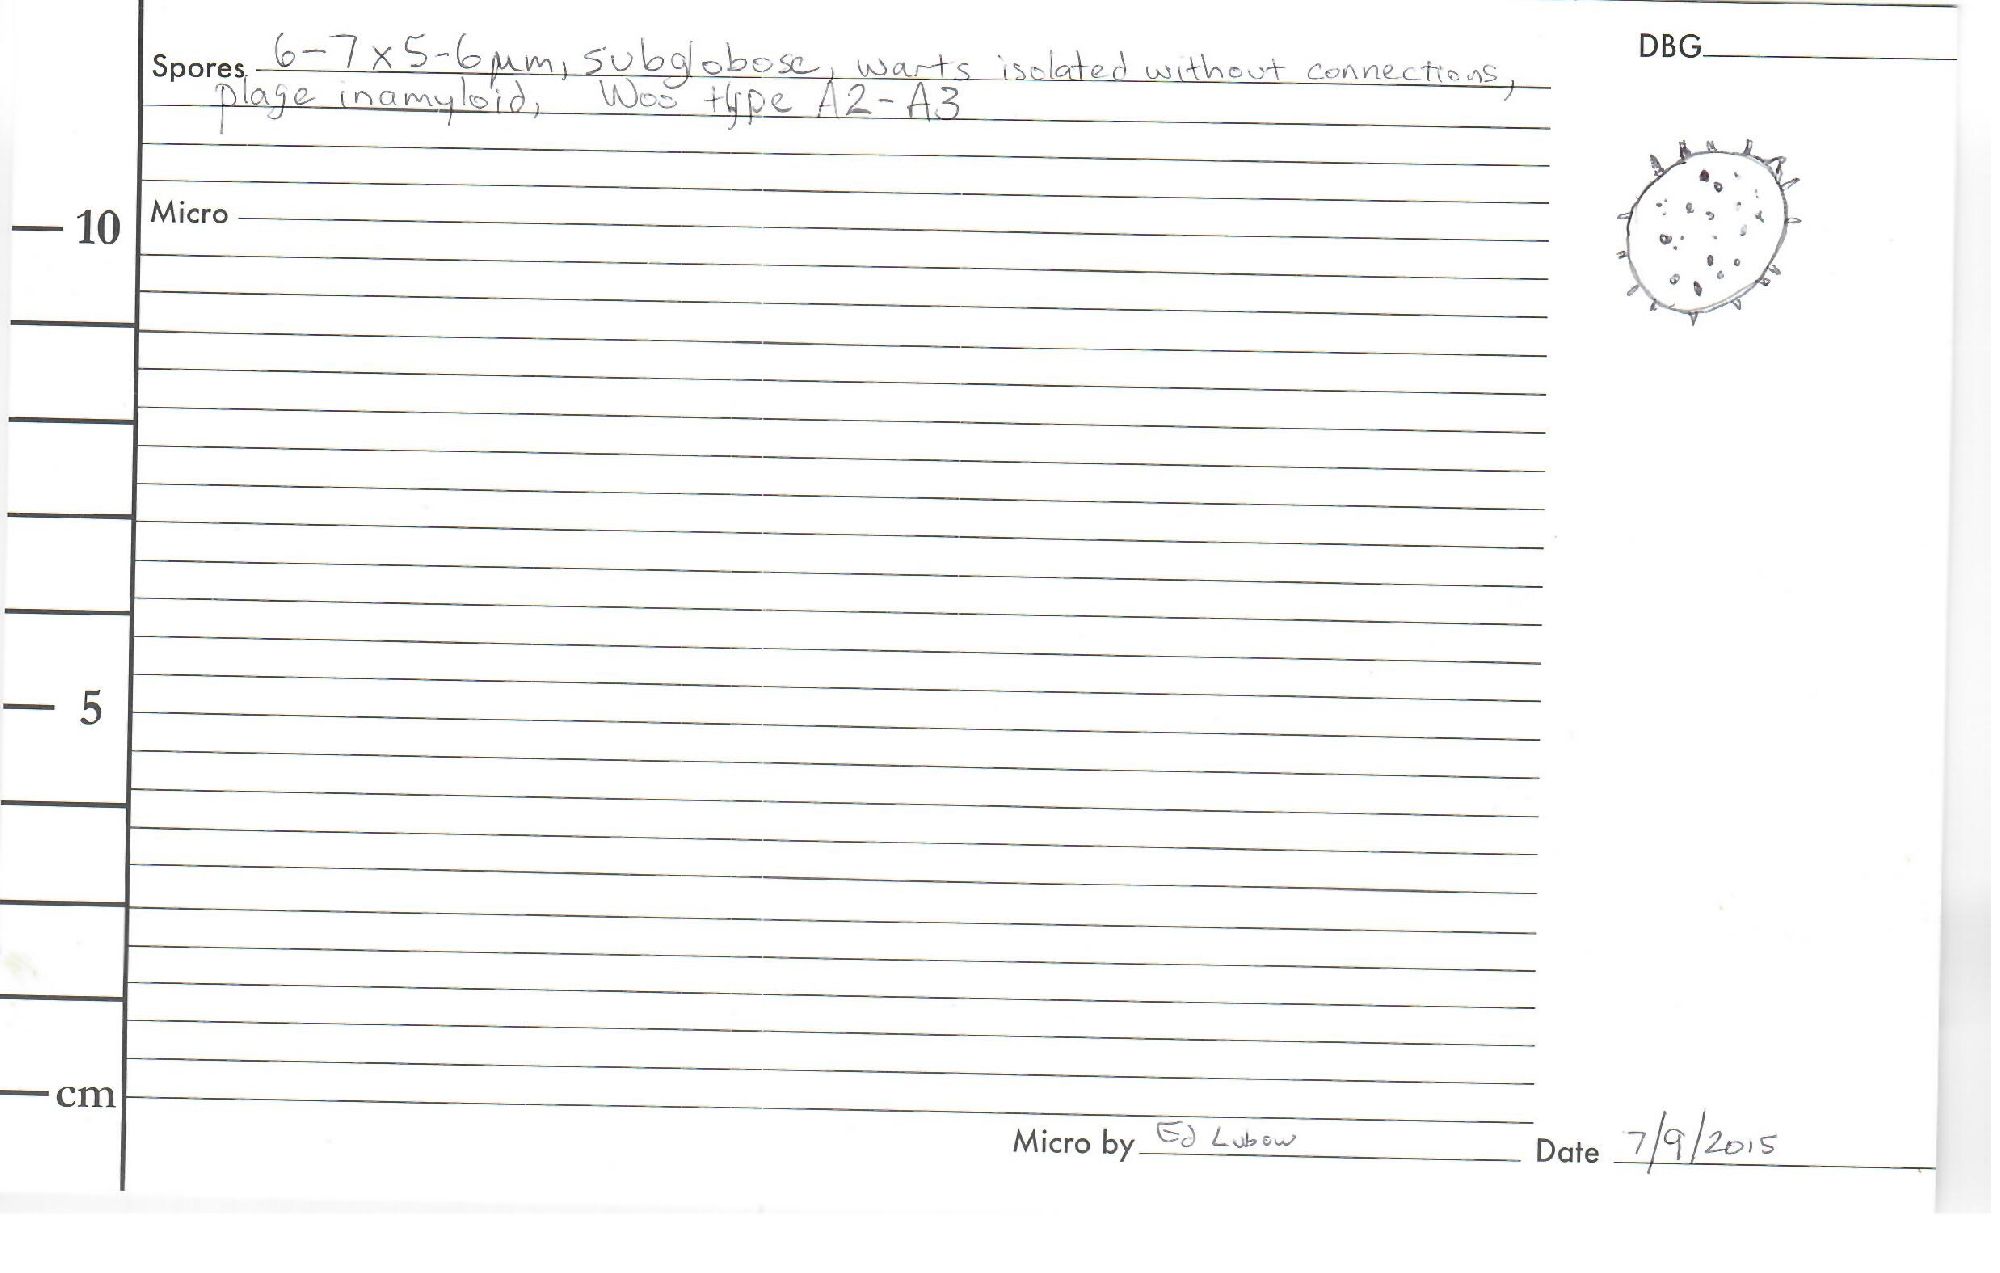 DBG
Spores 6-7x5-6μm, subglobose, warts isolated without connections,
plage inamyloid, Woo type A2-A3
10
Micro
5
cm
Micro by Ed Lubow Date 7/9/2015